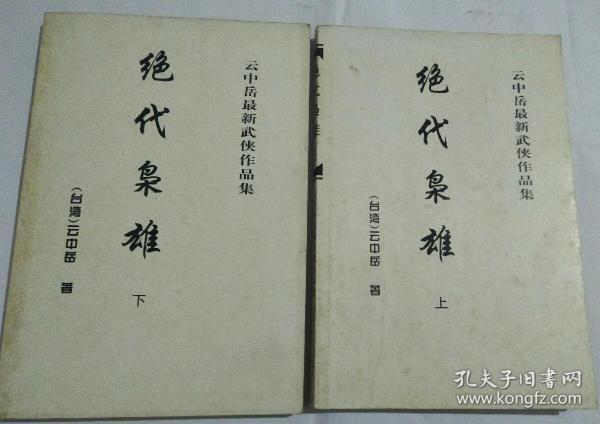 云中岳最新武侠作品集
绝代枭雄
下
(台湾)云中岳 著
云中岳最新武侠作品集
绝代枭雄
上
(台湾)云中岳 著
孔夫子旧书网
www.kongfz.com